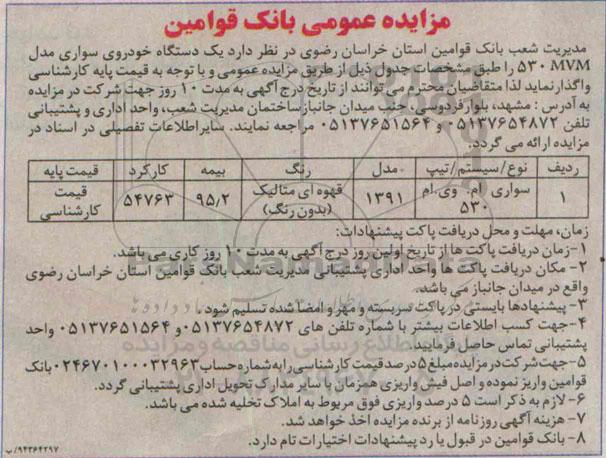 مزایده عمومی بانک قوامین
مدیریت شعب بانک قوامین استان خراسان رضوی در نظر دارد یک دستگاه خودروی سواری مدل
MVM ۵۳۰ را طبق مشخصات جدول ذیل از طریق مزایده عمومی و با توجه به قیمت پایه کارشناسی
واگذار نماید لذا متقاضیان محترم می توانند از تاریخ درج آگهی به مدت ۱۰ روز جهت شرکت در مزایده
به آدرس : مشهد، بلوار فردوسی، جنب میدان جانباز ساختمان مدیریت شعب، واحد اداری و پشتیبانی
تلفن ۰۵۱۳۷۶۵۴۸۷۲ و ۰۵۱۳۷۶۵۱۵۶۴ مراجعه نمایند. سایر اطلاعات تفصیلی در اسناد در
مزایده ارائه می گردد.
ردیف نوع/سیستم/تیپ مدل رنگ بیمه کارکرد قیمت پایه
۱ سواری ام. وی.ام ۵۳۰ ۱۳۹۱ قهوه ای متالیک (بدون رنگ) ۹۵٫۲ ۵۴۷۶۳ قیمت کارشناسی
زمان، مهلت و محل دریافت پاکت پیشنهادات:
۱-زمان دریافت پاکت ها از تاریخ اولین روز درج آگهی به مدت ۱۰ روز کاری می باشد.
۲- مکان دریافت پاکت ها واحد اداری پشتیبانی مدیریت شعب بانک قوامین استان خراسان رضوی
واقع در میدان جانباز می باشد.
۳- پیشنهادها بایستی در پاکت سربسته و مهر و امضا شده تسلیم شود .
۴-جهت کسب اطلاعات بیشتر با شماره تلفن های ۰۵۱۳۷۶۵۴۸۷۲ و ۰۵۱۳۷۶۵۱۵۶۴ واحد
پشتیبانی تماس حاصل فرمایید.
۵-جهت شرکت در مزایده مبلغ ۵ درصد قیمت کارشناسی را به شماره حساب ۰۲۴۶۷۰۱۰۰۰۰۳۲۹۶۳ بانک
قوامین واریز نموده و اصل فیش واریزی همزمان با سایر مدارک تحویل اداری پشتیبانی گردد.
۶-لازم به ذکر است ۵ درصد واریزی فوق مربوط به املاک تخلیه شده می باشد.
۷- هزینه آگهی روزنامه از برنده مزایده اخذ خواهد شد.
۸- بانک قوامین در قبول یا رد پیشنهادات اختیارات تام دارد.
۹۴۳۶۴۲۹۷/پ